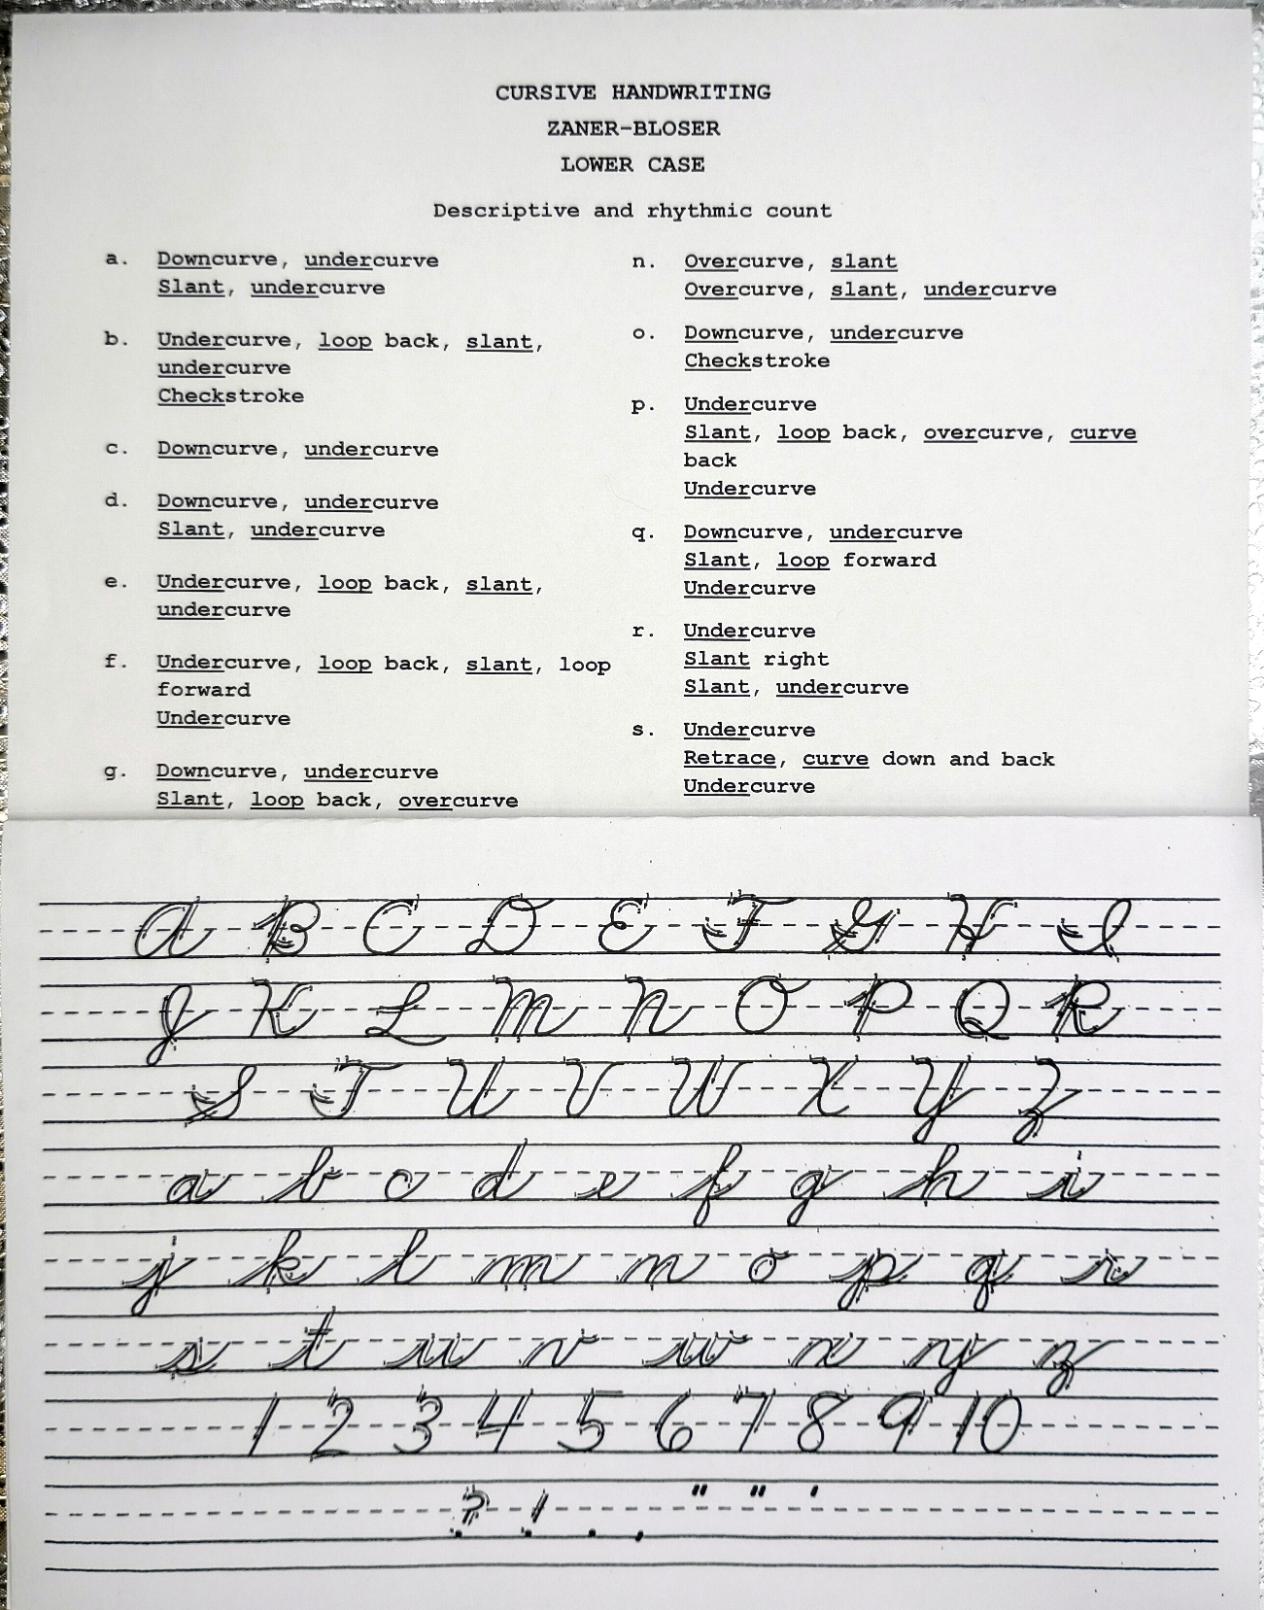 CURSIVE HANDWRITING
ZANER-BLOSER
LOWER CASE
Descriptive and rhythmic count
a. Downcurve, undercurve
Slant, undercurve
b. Undercurve, loop back, slant,
undercurve
Checkstroke
c. Downcurve, undercurve
d. Downcurve, undercurve
Slant, undercurve
e. Undercurve, loop back, slant,
undercurve
f. Undercurve, loop back, slant, loop
forward
Undercurve
g. Downcurve, undercurve
Slant, loop back, overcurve
n. Overcurve, slant
Overcurve, slant, undercurve
o. Downcurve, undercurve
Checkstroke
p. Undercurve
Slant, loop back, overcurve, curve
back
Undercurve
q. Downcurve, undercurve
Slant, loop forward
Undercurve
r. Undercurve
Slant right
Slant, undercurve
s. Undercurve
Retrace, curve down and back
Undercurve
A B C D E F G H I
J K L M N O P Q R
S T U V W X Y Z
a b c d e f g h i
j k l m n o p q r
s t u v w x y z
1 2 3 4 5 6 7 8 9 10
? ! . , " " '